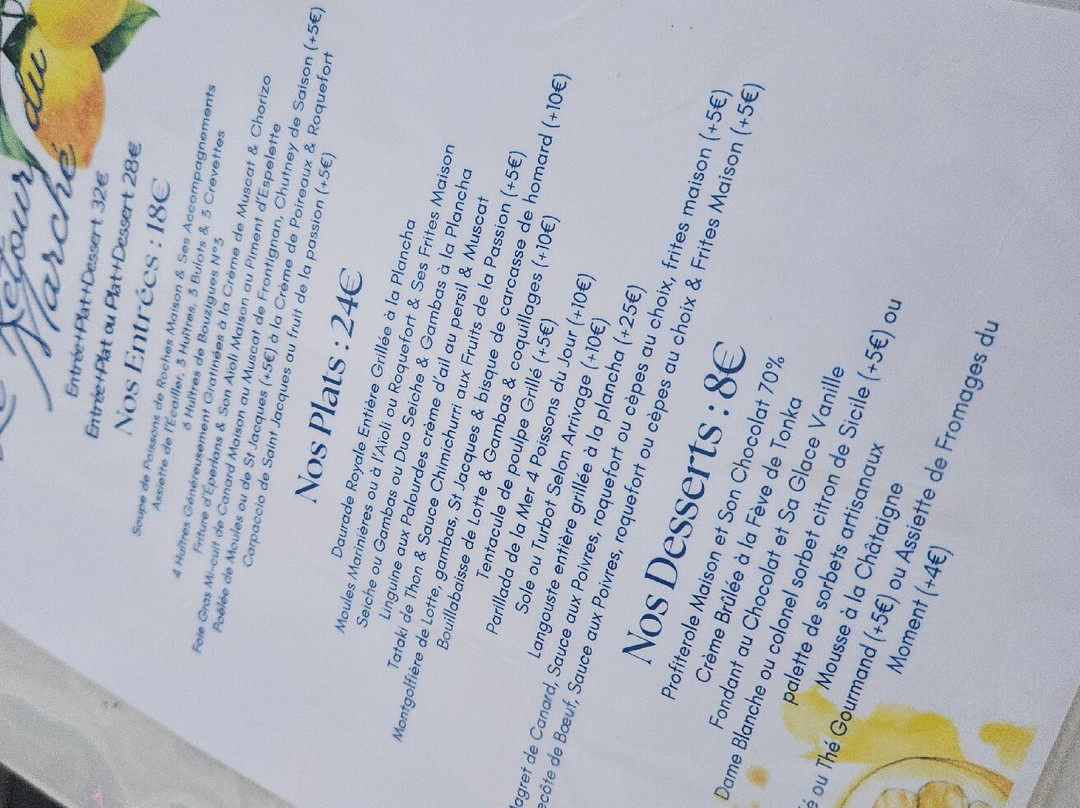 Retour du
Marché
Entrée+Plat+Dessert 32€
Entrée+Plat ou Plat+Dessert 28€
Nos Entrées : 18€
Soupe de Poissons de Roches Maison & Ses Accompagnements
Assiette de l'Ecailler, 3 Huîtres, 3 Bulots & 3 Crevettes
6 Huîtres de Bouzigues N°3
4 Huîtres Généreusement Gratinées à la Crème de Muscat & Chorizo
Friture d'Éperlans & Son Aïoli Maison au Piment d'Espelette
Foie Gras Mi-cuit de Canard Maison au Muscat de Frontignan, Chutney de Saison (+5€)
Poêlée de Moules ou de St Jacques (+5€) à la Crème de Poireaux & Roquefort
Carpaccio de Saint Jacques au fruit de la passion (+5€)
Nos Plats : 24€
Daurade Royale Entière Grillée à la Plancha
Moules Marinières ou à l'Aïoli ou Roquefort & Ses Frites Maison
Seiche ou Gambas ou Duo Seiche & Gambas à la Plancha
Linguine aux Palourdes crème d'ail au persil & Muscat
Tataki de Thon & Sauce Chimichurri aux Fruits de la Passion (+5€)
Montgolfière de Lotte, gambas, St Jacques & bisque de carcasse de homard (+10€)
Bouillabaisse de Lotte & Gambas & coquillages (+10€)
Tentacule de poulpe Grillé (+5€)
Parillada de la Mer 4 Poissons du Jour (+10€)
Sole ou Turbot Selon Arrivage (+10€)
Langouste entière grillée à la plancha (+25€)
agret de Canard, Sauce aux Poivres, roquefort ou cèpes au choix, frites maison (+5€)
ecôte de Bœuf, Sauce aux Poivres, roquefort ou cèpes au choix & Frites Maison (+5€)
Nos Desserts : 8€
Profiterole Maison et Son Chocolat 70%
Crème Brûlée à la Fève de Tonka
Fondant au Chocolat et Sa Glace Vanille
Dame Blanche ou colonel sorbet citron de Sicile (+5€) ou
palette de sorbets artisanaux
Mousse à la Châtaigne
é ou Thé Gourmand (+5€) ou Assiette de Fromages du
Moment (+4€)